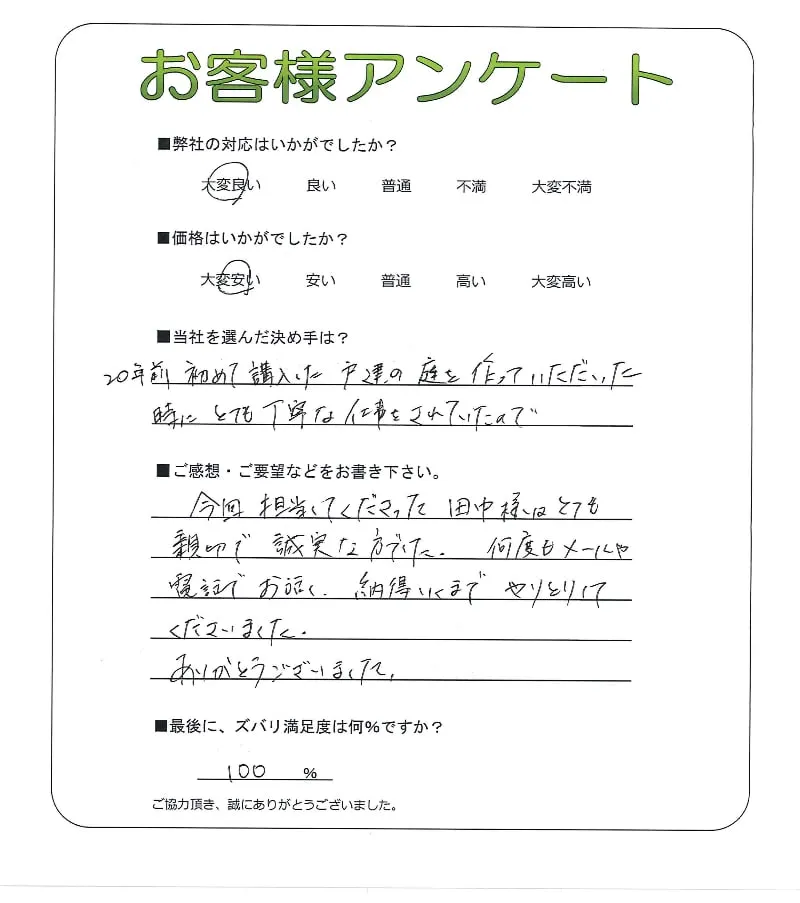 お客様アンケート
■弊社の対応はいかがでしたか？
大変良い 良い 普通 不満 大変不満
■価格はいかがでしたか？
大変安い 安い 普通 高い 大変高い
■当社を選んだ決め手は？
20年前 初めて購入した 戸建の 庭を 作っていただいた
時に とても 丁寧な 仕事をされていたので
■ご感想・ご要望などをお書き下さい。
今回 担当してくださった 田中様はとても
親切で 誠実な方でした。 何度もメールや
電話で お話し、納得いくまで やりとりして
くださいました。
ありがとうございました。
■最後に、ズバリ満足度は何％ですか？
100 ％
ご協力頂き、誠にありがとうございました。